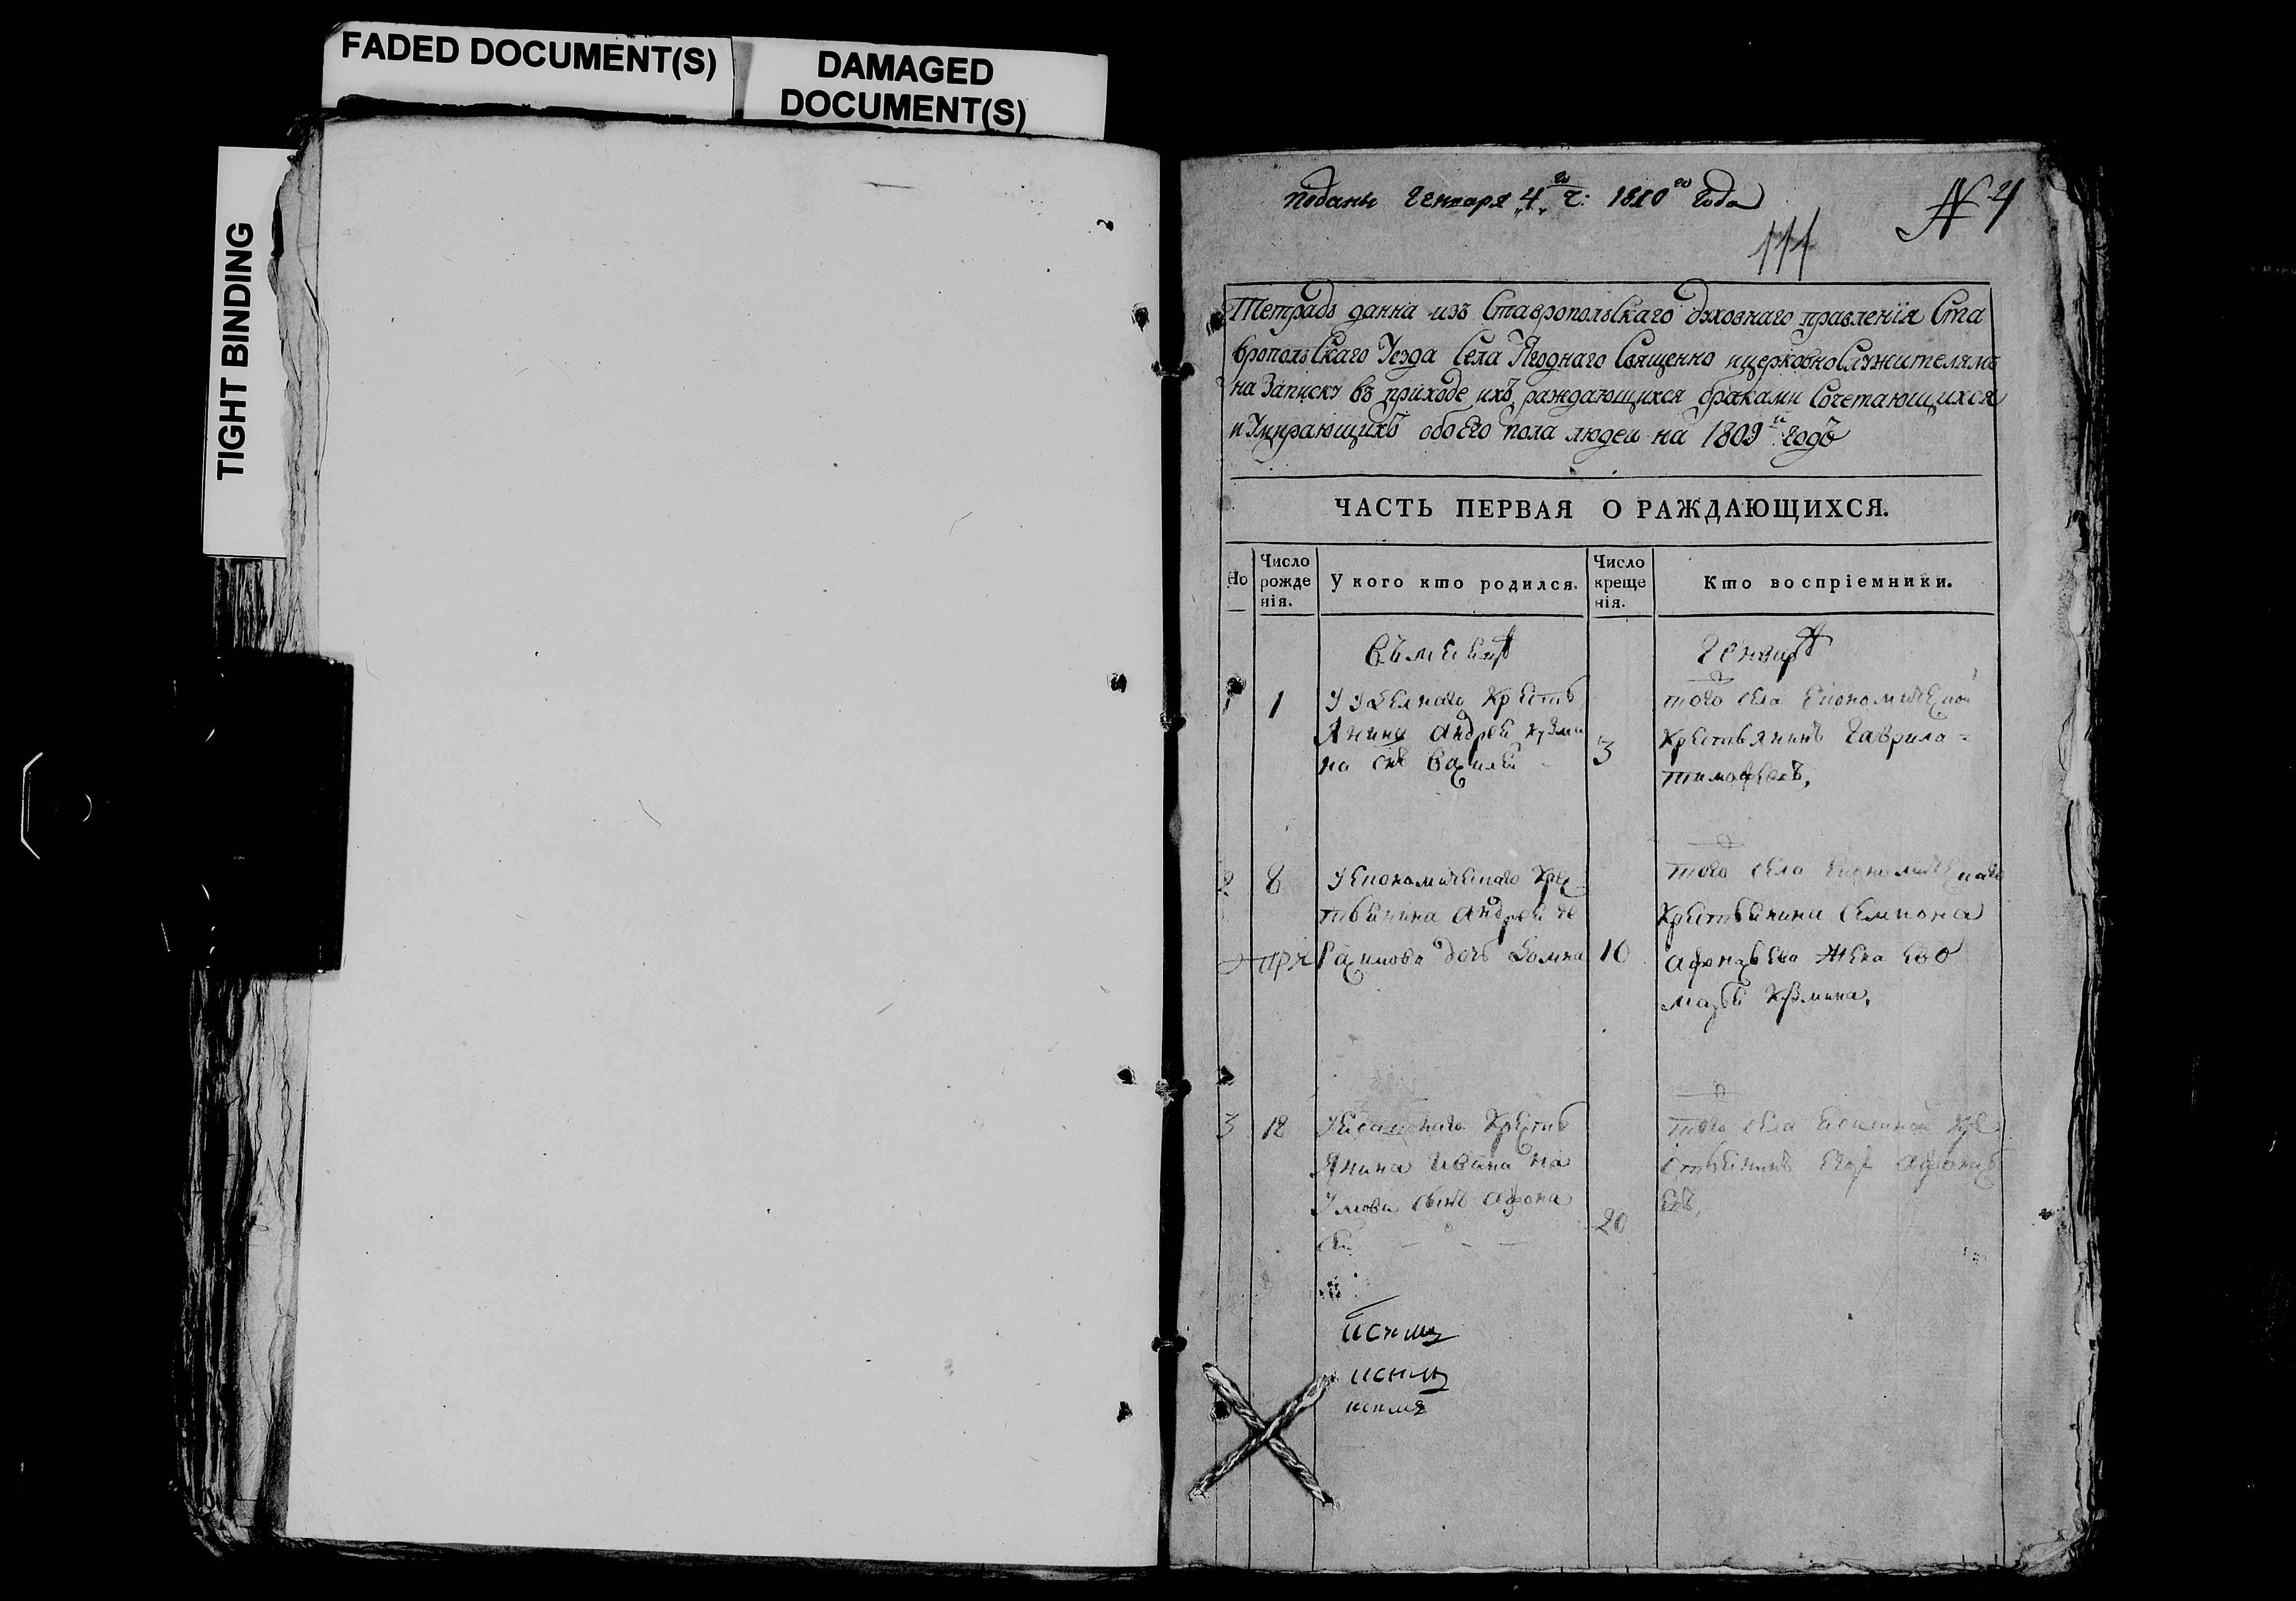 FADED DOCUMENT(S)
DAMAGED
DOCUMENT(S)
TIGHT BINDING
поданы Генваря 4го ч: 1810го года
№ 4
111
Тетрадь данна изъ Ставропольскаго духовнаго правленія Ста
вропольскаго уезда села Ягоднаго священно ицерковнослужителямъ
на записку въ приходе ихъ раждающихся браками сочетающихся
и умирающихъ обоего пола людей на 1809й годъ
ЧАСТЬ ПЕРВАЯ О РАЖДАЮЩИХСЯ.
Но
Число
рожде
нія.
У кого кто родился.
Число
креще
нія.
Кто воспріемники.
Генваря
1
1
У удельнаго кресть
янина Андрея Кузми
на снъ Василей
3
того села економической
крестьянинъ Гаврила
Тимофеевъ,
2
8
У економическаго кре
стьянина Андрея Ге
расимова дочь Домна
10
того села економическаго
крестьянина Семиона
Афонасьева жена ево
Кузмина,
3
18
янина Ивана На
умова сынъ Афона
сей
20
того села кре
стьянинъ Егор Афонасьевъ